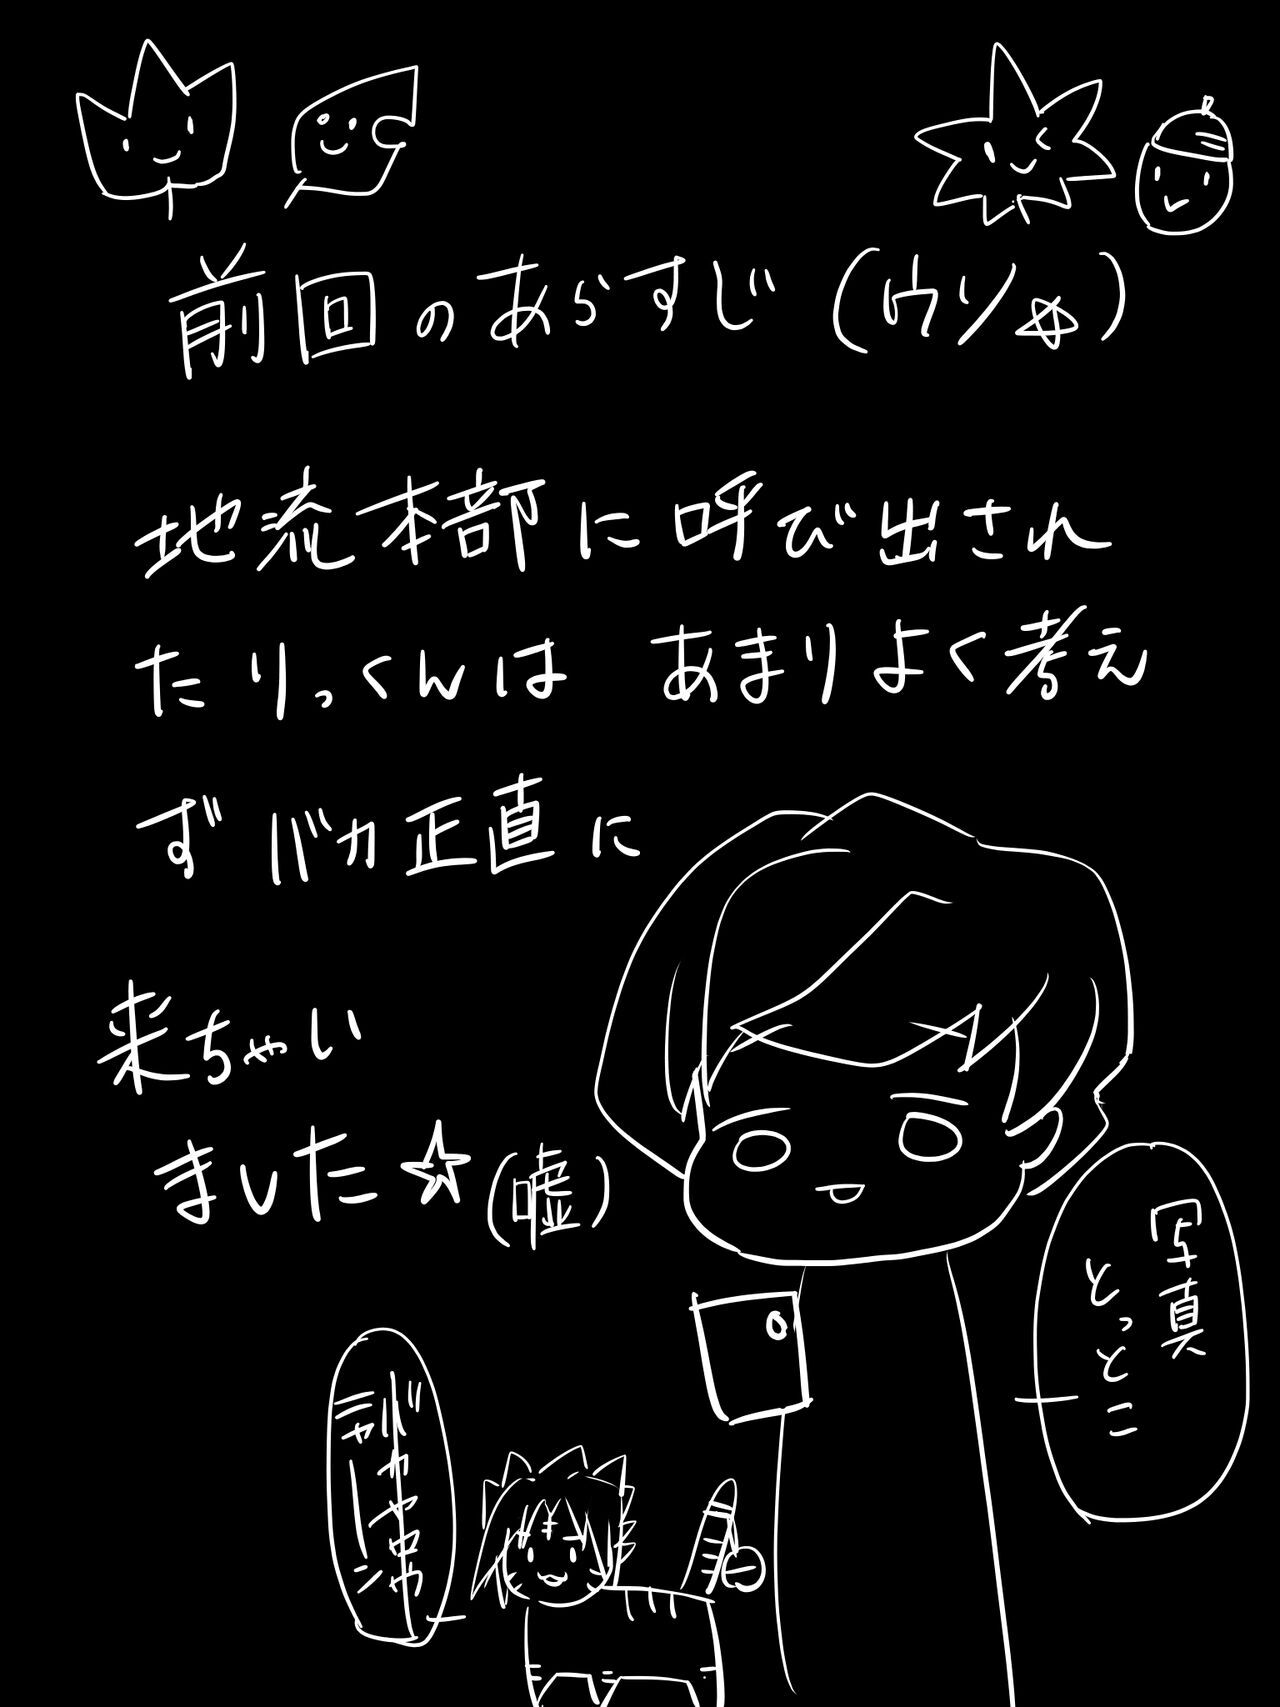 前回のあらすじ(ウソ☆)
地流本部に呼び出され
たりっくんは あまりよく考え
ず バカ正直に
来ちゃい
ました☆(嘘)
写真
とっとこ